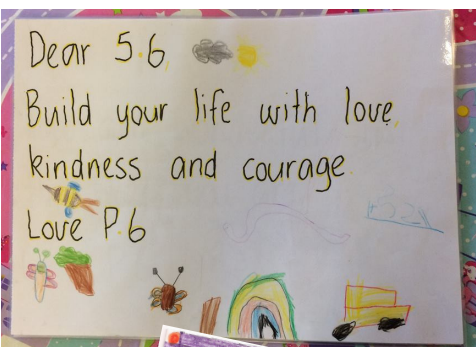 Dear 5.6
Build your life with love,
kindness and courage.
Love P.6